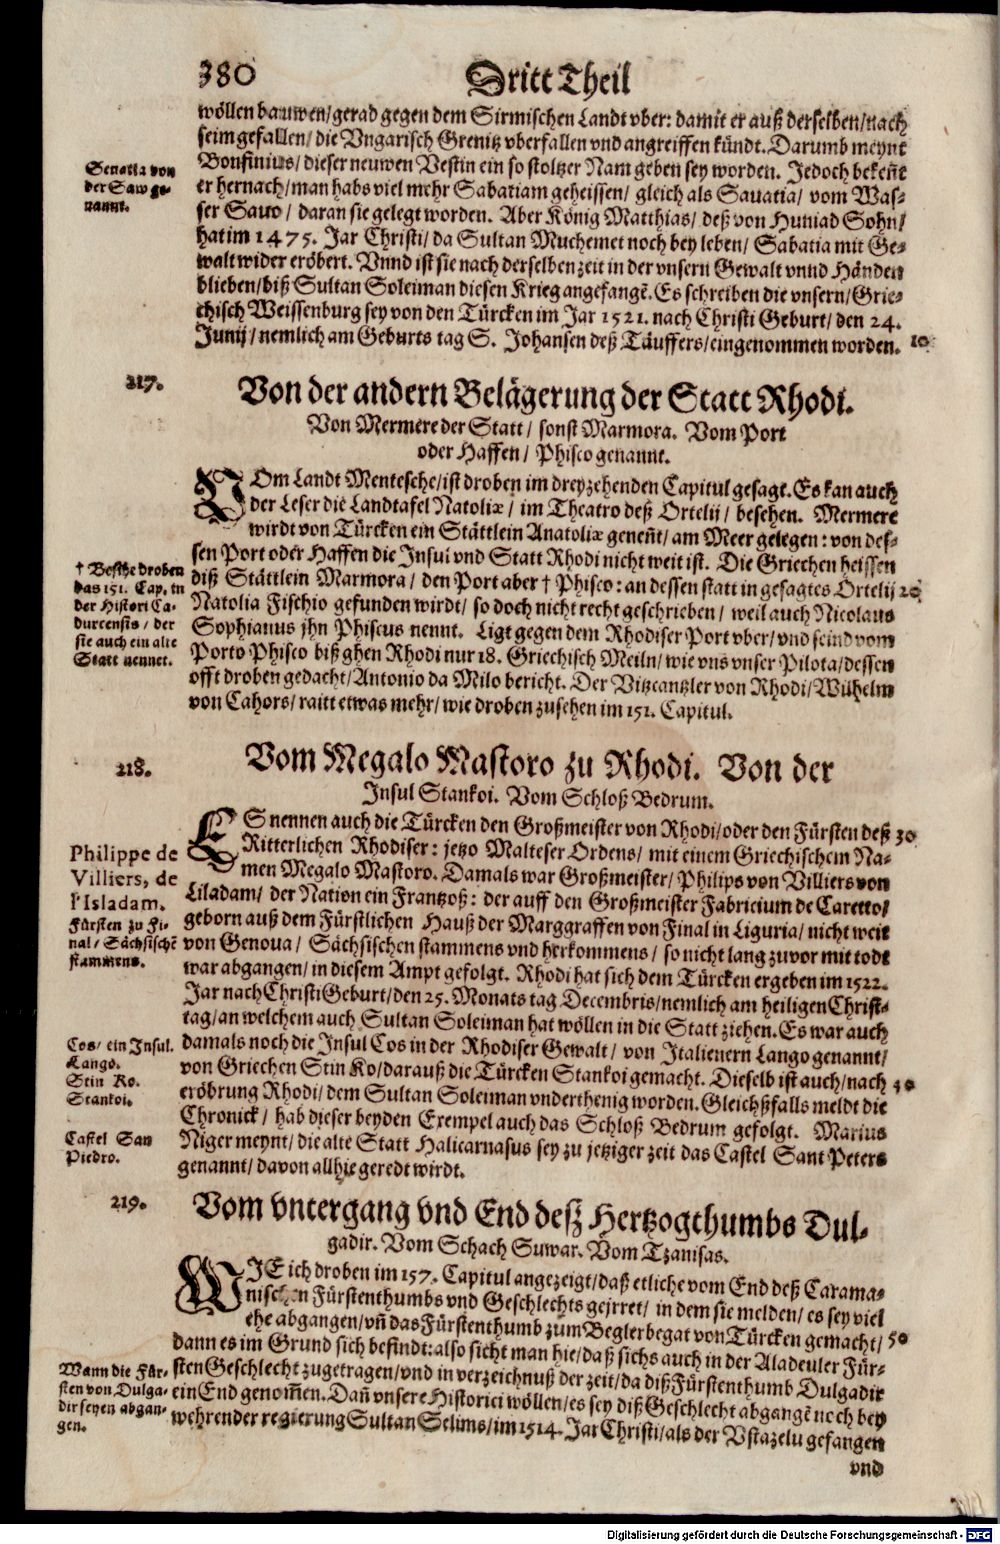 380
Dritt Theil
wöllen bauwen/gerad gegen dem Sirmischen Landt vber: damit er auß derselben/nach
seim gefallen/die Vngarisch Grenitz vberfallen vnd angreiffen kündt. Darumb meynt
Bonfinius/dieser neuwen Vestin ein so stoltzer Nam geben sey worden. Jedoch bekeñt
er hernach/man habs viel mehr Sabatiam geheissen/gleich als Sauatia/vom Was-
ser Sauo/daran sie gelegt worden. Aber König Matthias/deß von Huniad Sohn/
hat im 1475. Jar Christi/da Sultan Muchemet noch bey leben/Sabatia mit Ge-
walt wider eröbert. Vnnd ist sie nach derselben zeit in der vnsern Gewalt vnnd Händen
blieben/biß Sultan Soleiman diesen Krieg angefangẽ. Es schreiben die vnsern/Grie-
chisch Weissenburg sey von den Türcken im Jar 1521. nach Christi Geburt/den 24.
Junij/nemlich am Geburts tag S. Johansen deß Täuffers/eingenommen worden.
10
von
der Saw ge-
nannt.
217.
Von der andern Belägerung der Statt Rhodi.
Von Mermere der Statt/sonst Marmora. Vom Port
oder Haffen/Phisco genannt.
VOm Landt Mentesche/ist droben im dreyzehenden Capitul gesagt. Es kan auch
der Leser die Landtafel Natoliæ/im Theatro deß Ortelij/besehen. Mermere
wirdt von Türcken ein Stättlein Anatoliæ geneñt/am Meer gelegen: von des-
sen Port oder Haffen die Insul vnd Statt Rhodi nicht weit ist. Die Griechen heissen
diß Stättlein Marmora/den Port aber † Phisco: an dessen statt in gesagtes Ortelij
20
Natolia Fischio gefunden wirdt/so doch nicht recht geschrieben/weil auch Nicolaus
Sophianus jhn Phiscus nennt. Ligt gegen dem Rhodiser Port vber/vnd seind vom
Porto Phisco biß ghen Rhodi nur 18. Griechisch Meiln/wie vns vnser Pilota/dessen
offt droben gedacht/Antonio da Milo bericht. Der Vitzcantzler von Rhodi/Wilhelm
von Cahors/raitt etwas mehr/wie droben zusehen im 151. Capitul.
† Besihe droben
das 151. Cap. in
der Histori Ca-
durcensis/der
sie auch ein alte
Statt nennet.
218.
Vom Megalo Mastoro zu Rhodi. Von der
Insul Stankoi. Vom Schloß Bedrum.
ES nennen auch die Türcken den Großmeister von Rhodi/oder den Fürsten deß
30
Ritterlichen Rhodiser: jetzo Malteser Ordens/mit einem Griechischem Na-
men Megalo Mastoro. Damals war Großmeister/Philips von Villiers von
Liladam/der Nation ein Frantzoß: der auff den Großmeister Fabricium de Caretto/
geborn auß dem Fürstlichen Hauß der Marggraffen von Final in Liguria/nicht weit
von Genoua/Sächsischen stammens vnd herkommens/so nicht lang zuvor mit todt
war abgangen/in diesem Ampt gefolgt. Rhodi hat sich dem Türcken ergeben im 1522.
Jar nach Christi Geburt/den 25. Monats tag Decembris/nemlich am heiligen Christ-
tag/an welchem auch Sultan Soleiman hat wöllen in die Statt ziehen. Es war auch
damals noch die Insul Cos in der Rhodiser Gewalt/von Italienern Lango genannt/
von Griechen Stin Ko/darauß die Türcken Stankoi gemacht. Dieselb ist auch/nach
40
eröbrung Rhodi/dem Sultan Soleiman vnderthenig worden. Gleichßfalls meldt die
Chronick/hab dieser beyden Exempel auch das Schloß Bedrum gefolgt. Marius
Niger meynt/die alte Statt Halicarnasus sey zu jetziger zeit das Castel Sant Peters
genannt/davon allhie geredt wirdt.
Philippe de
Villiers, de
l'Isladam.
Fürsten zu Fi-
nal/Sächsischẽ
stammens.
Cos/ein Insul.
Lango.
Stin Ko.
Stankoi.
Castel San
Piedro.
219.
Vom vntergang vnd End deß Hertzogthumbs Dul-
gadir. Vom Schach Suwar. Vom Tzanisas.
WIE ich droben im 157. Capitul angezeigt/daß etliche vom End deß Carama-
nischen Fürstenthumbs vnd Geschlechts gejrret/in dem sie melden/es sey viel
ehe abgangen/vñ das Fürstenthumb zum Beglerbegat von Türcken gemacht/
50
dann es im Grund sich befindt: also sicht man hie/daß sichs auch in der Aladeuler Für-
sten Geschlecht zugetragen/vnd in verzeichnuß der zeit/da diß Fürstenthumb Dulgadir
ein End genom̃en. Dañ vnsere Historici wöllen/es sey diß Geschlecht abgangẽ noch bey
wehrender regierung Sultan Selims/im 1514. Jar Christi/als der Vstazelu gefangen
vnd
Wann die Für-
sten von Dulga-
dir seyen abgan-
gen.
Digitalisierung gefördert durch die Deutsche Forschungsgemeinschaft - DFG